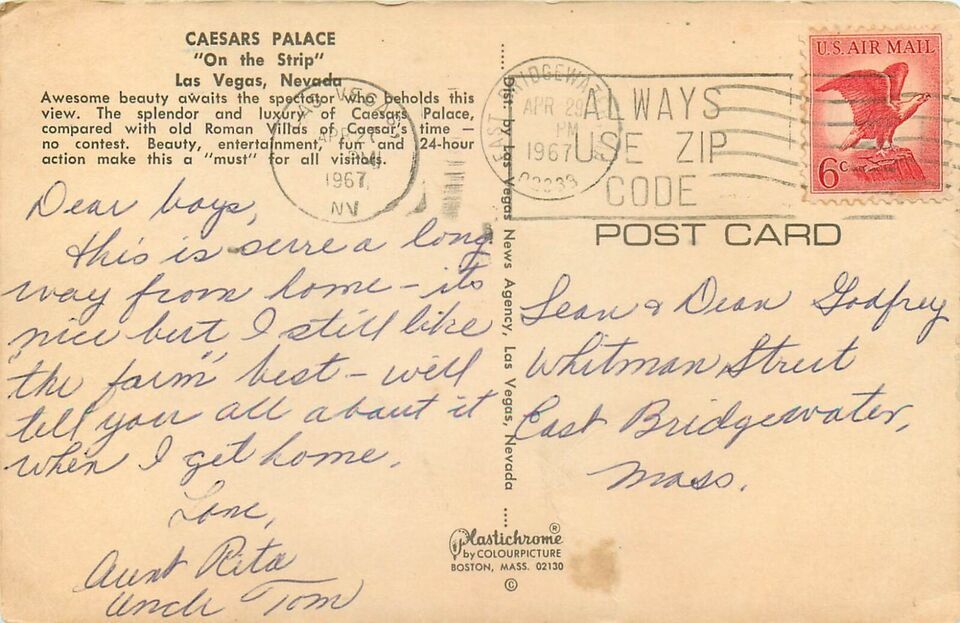 CAESARS PALACE
"On the Strip"
Las Vegas, Nevada
Awesome beauty awaits the spectator who beholds this
view. The splendor and luxury of Caesars Palace,
compared with old Roman Villas of Caesar's time —
no contest. Beauty, entertainment, fun and 24-hour
action make this a "must" for all visitors.
LAS VEGAS
APR
1967
NV
Dear boys,
this is sure a long
way from home – its
nice but I still like
"the farm" best – will
tell you all about it
when I get home.
Love,
Aunt Rita
Uncle Tom
Dist. by Las Vegas News Agency, Las Vegas, Nevada
Plastichrome®
by COLOURPICTURE
BOSTON, MASS. 02130
©
EAST BRIDGEWATER
APR 29
PM
1967
02333
ALWAYS
USE ZIP
CODE
U.S. AIR MAIL
6c
POST CARD
Sean & Dean Godfrey
Whitman Street
East Bridgewater,
Mass.